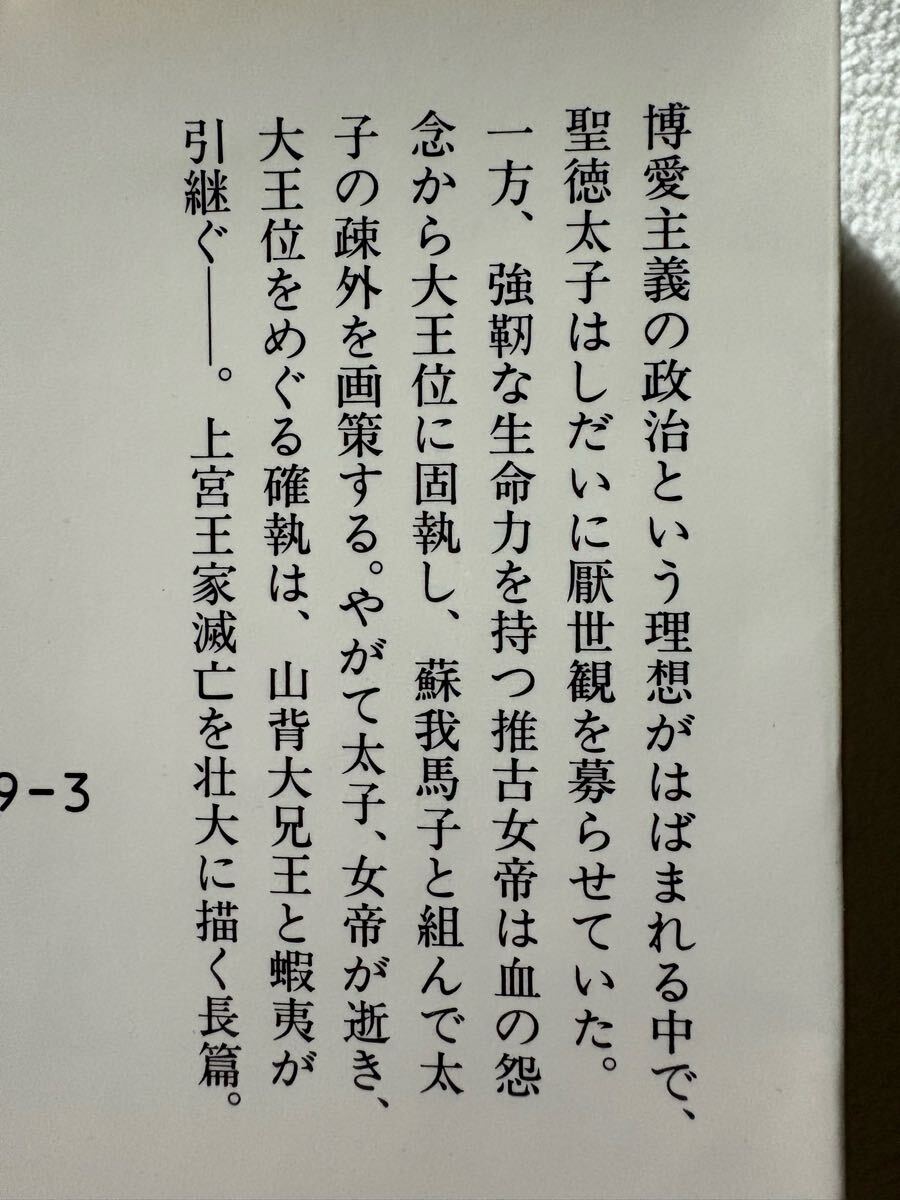 博愛主義の政治という理想がはばまれる中で、
聖徳太子はしだいに厭世観を募らせていた。
一方、強靭な生命力を持つ推古女帝は血の怨
念から大王位に固執し、蘇我馬子と組んで太
子の疎外を画策する。やがて太子、女帝が逝き、
大王位をめぐる確執は、山背大兄王と蝦夷が
引継ぐ——。上宮王家滅亡を壮大に描く長篇。
9-3